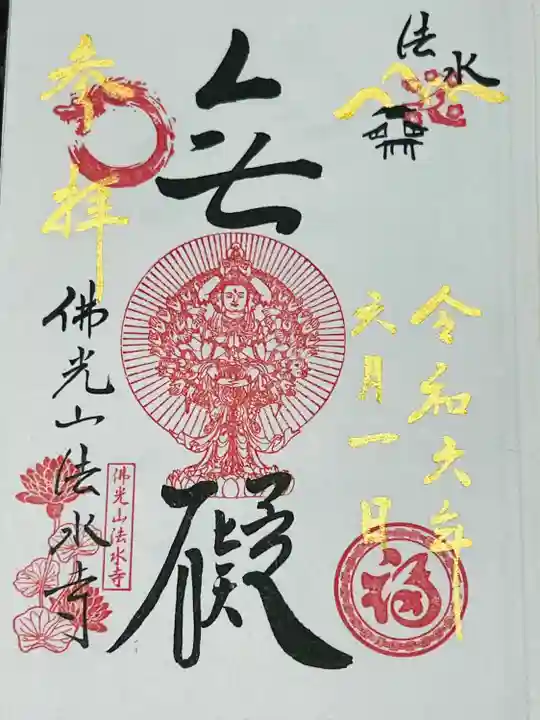 法水
令和六年
六月一日
無礙
参拝
佛光山法水寺
佛光山法水寺
福